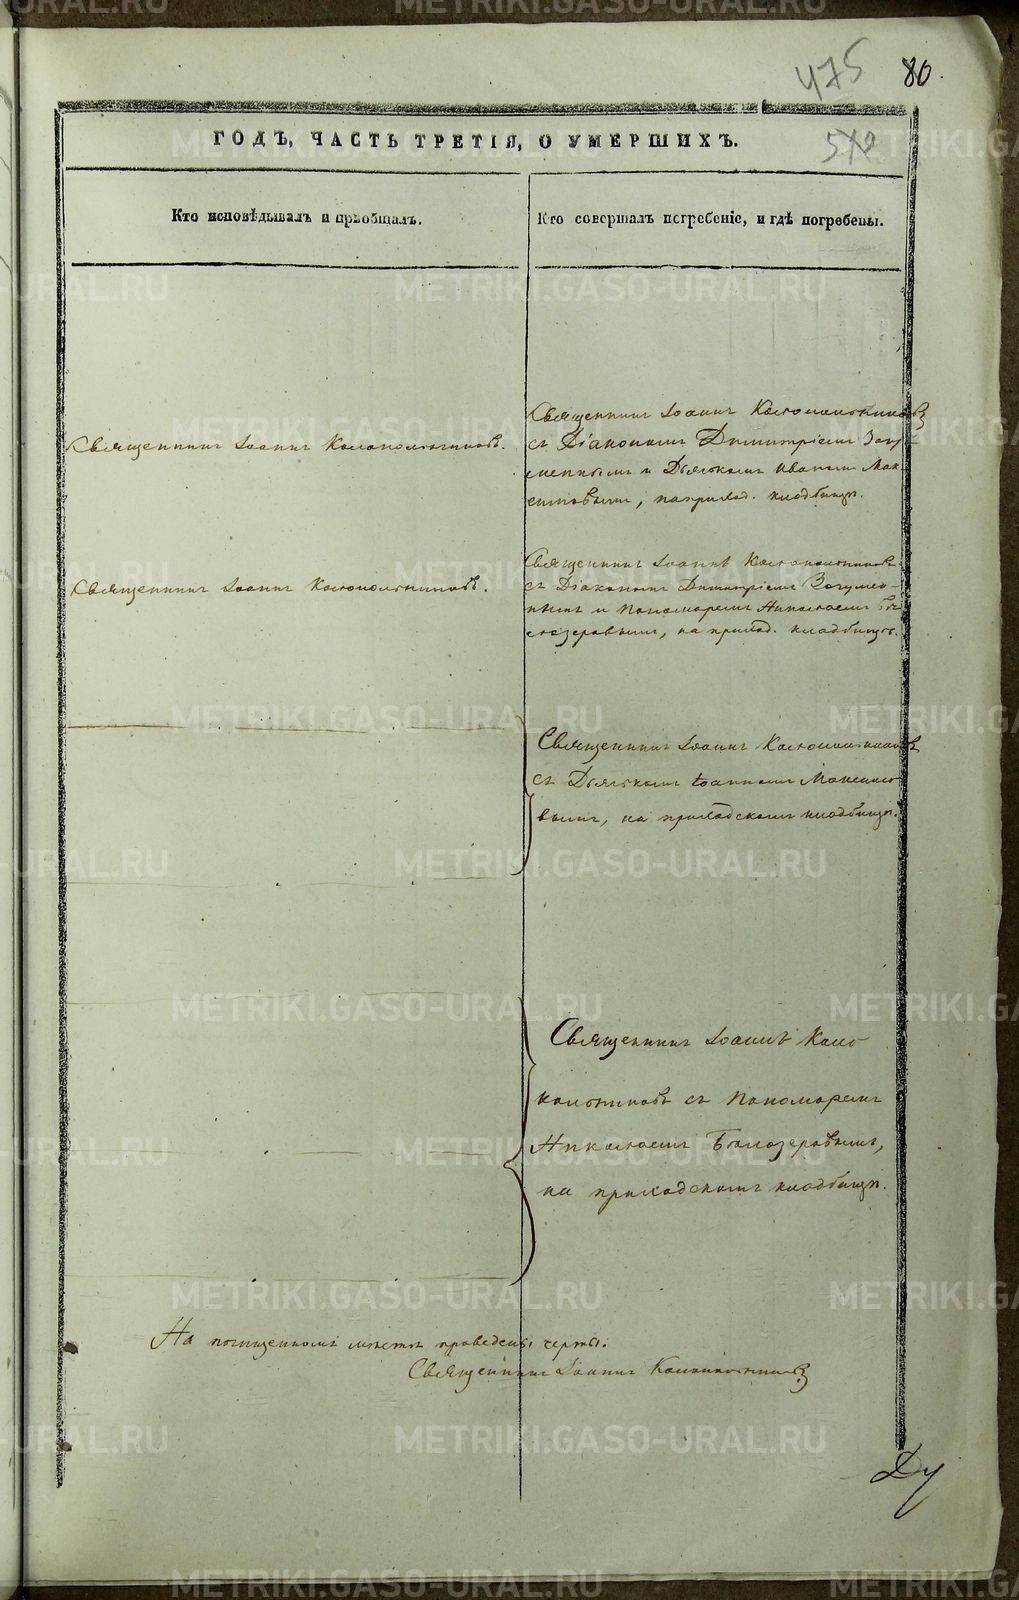 475
80.
510
ГОДЪ, ЧАСТЬ ТРЕТІЯ, О УМЕРШИХЪ.
Кто исповѣдывалъ и приобщалъ.
Кто совершалъ погребеніе, и гдѣ погребены.
Священникъ Іоаннъ Колокольниковъ.
Священникъ Іоаннъ Колокольниковъ
съ Діакономъ Димитріемъ Загу
меннымъ и Дьячкомъ Иваномъ Мак
симовымъ, на приход. кладбищѣ.
Священникъ Іоаннъ Колокольниковъ.
Священникъ Іоаннъ Колокольниковъ
съ Діакономъ Димитріемъ Загумен-
нымъ и Пономаремъ Николаемъ Бѣ
лозеровымъ, на приход. кладбищѣ.
Священникъ Іоаннъ Колокольниковъ
съ Дьячкомъ Іоанномъ Максимо
вымъ, на приходскомъ кладбищѣ.
Священникъ Іоаннъ Коло
кольниковъ съ Пономаремъ
Николаемъ Бѣлозеровымъ,
на приходскомъ кладбищѣ.
На помещенномъ мѣстѣ проведены черты.
Священникъ Іоаннъ Колокольниковъ
METRIKI.GASO-URAL.RU